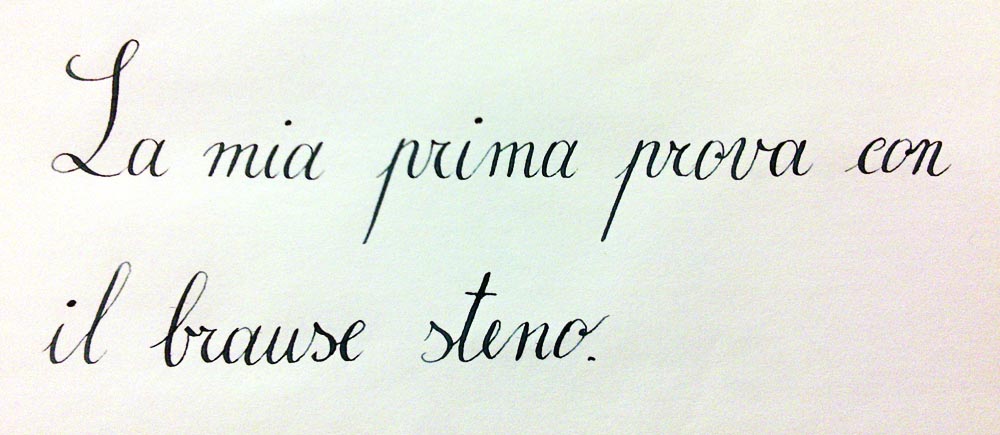 La mia prima prova con
il brause steno.